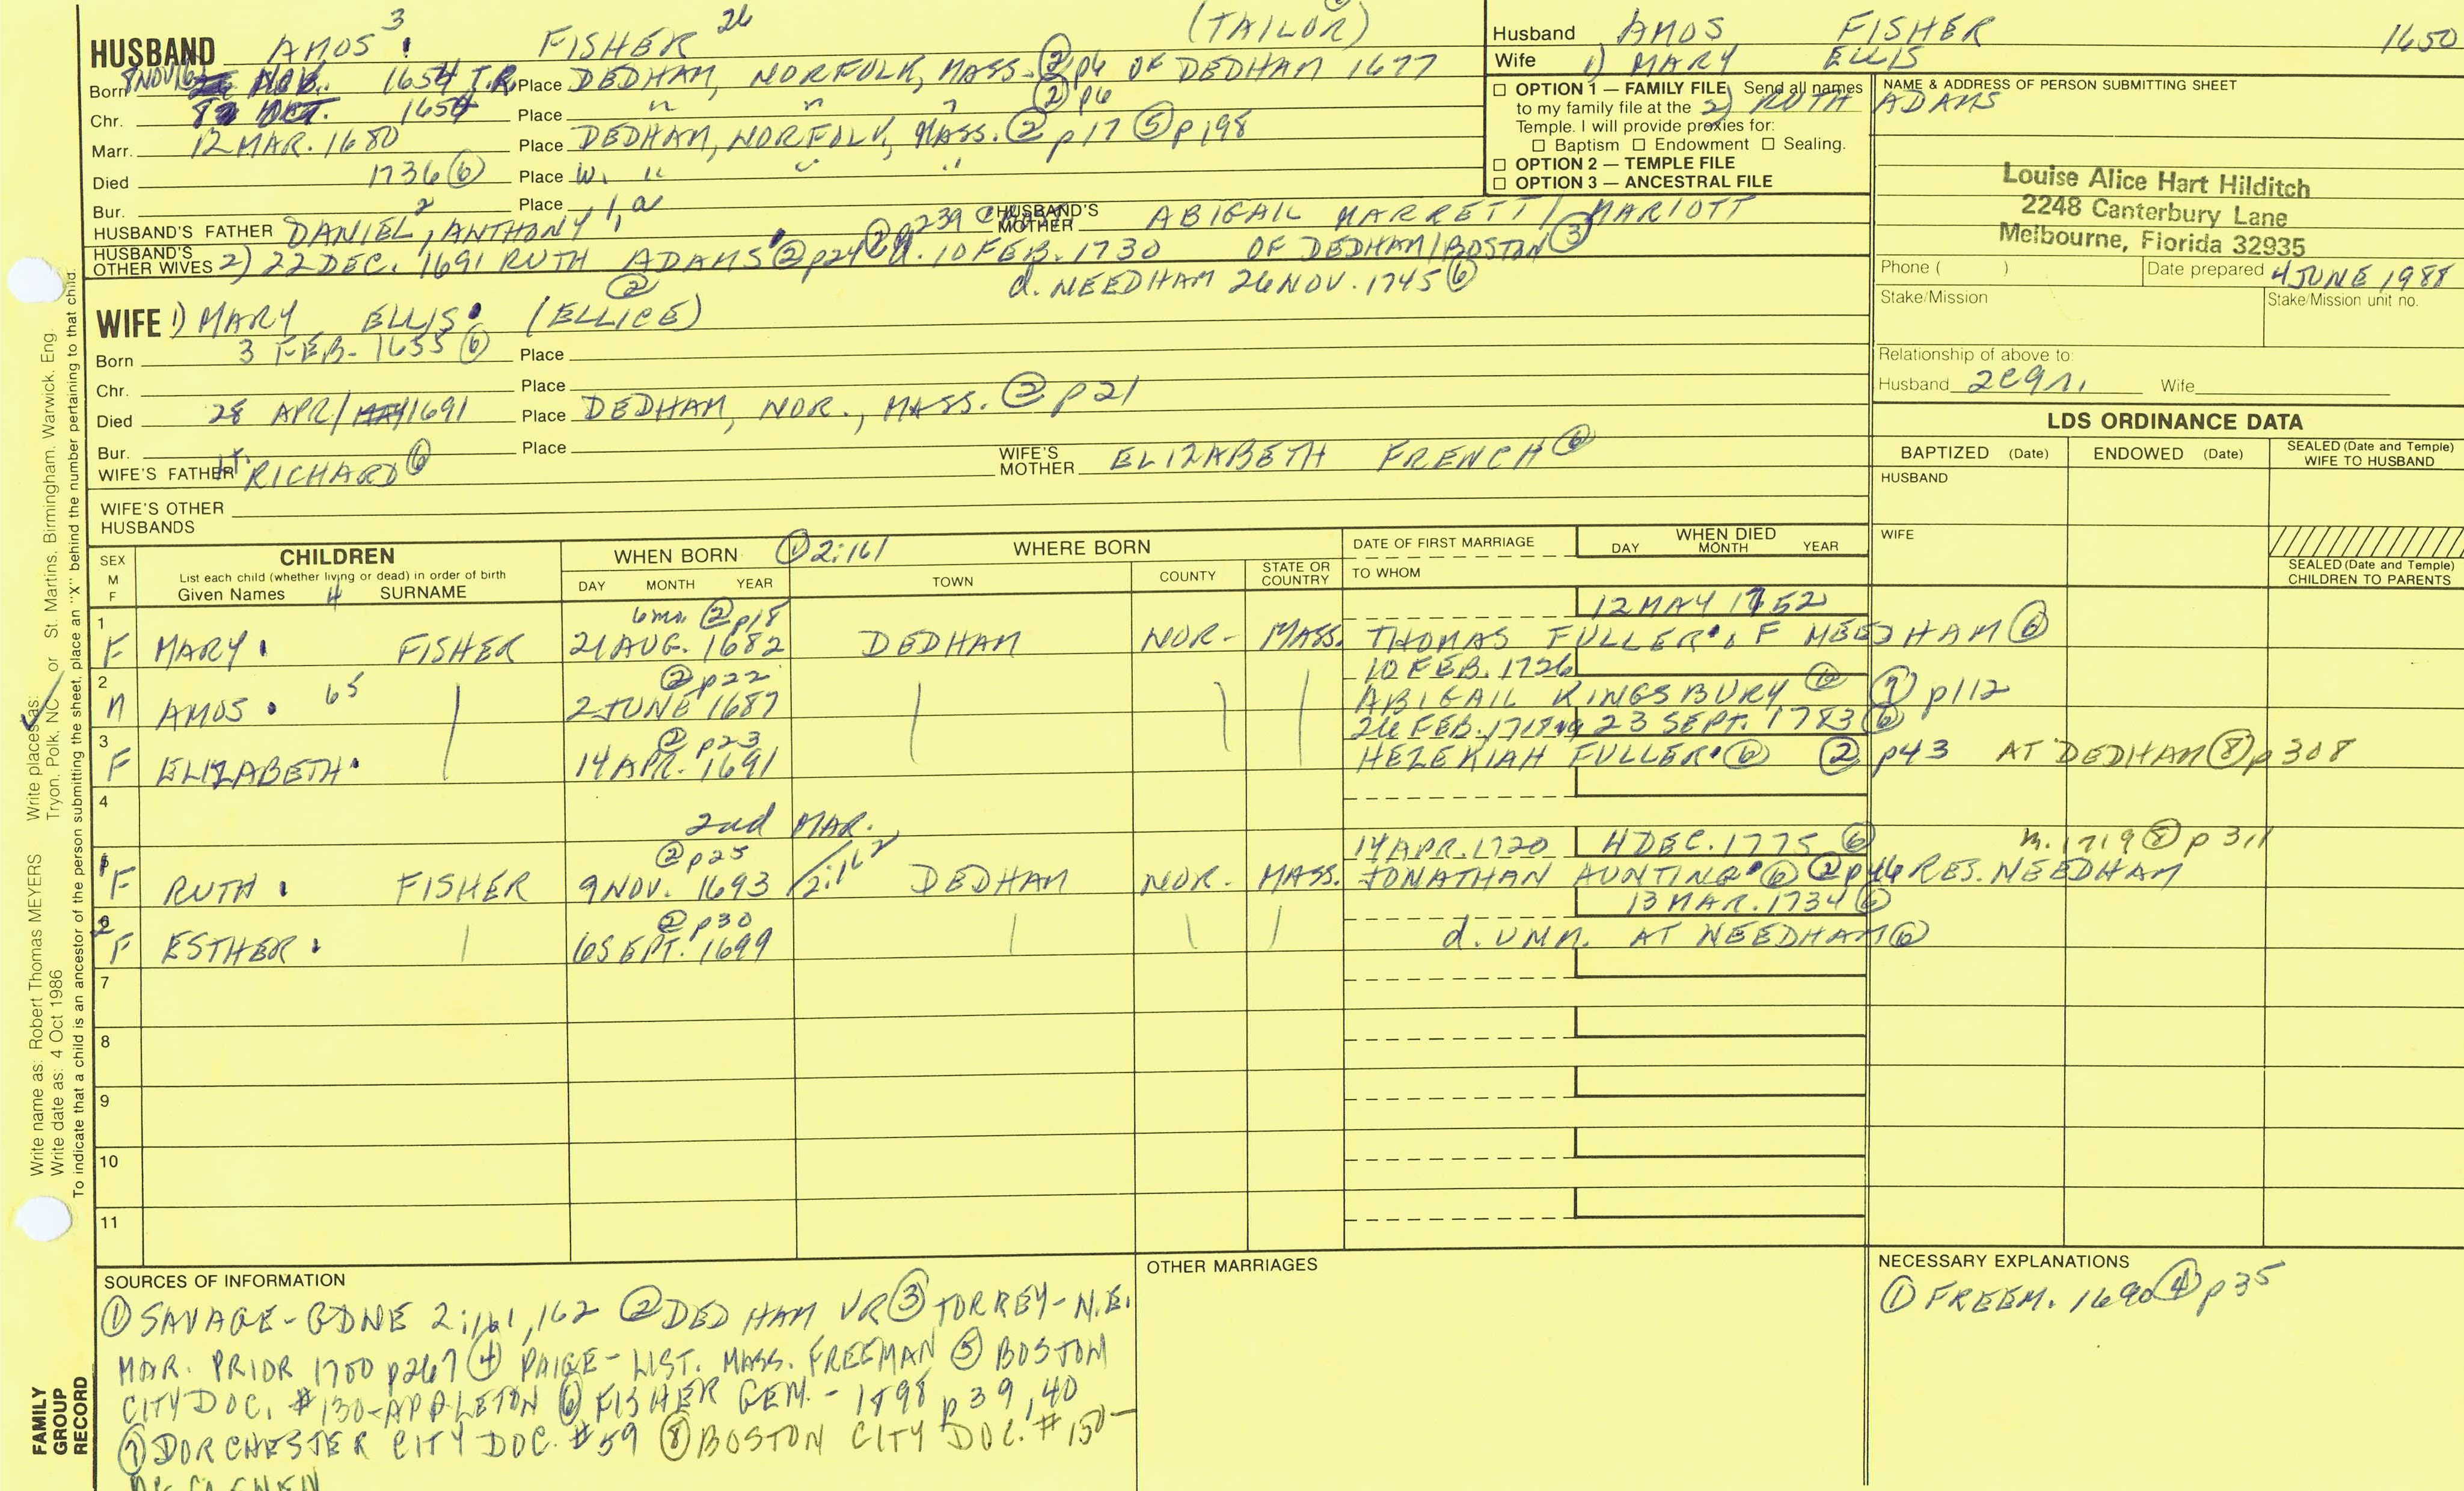 HUSBAND AMOS 3 FISHER 26 (TAILOR)
Born 8 NOV 1654 T.R. Place DEDHAM, NORFOLK, MASS. ② p6 OF DEDHAM 1677
Chr. OCT. 1654 Place " " " ② p6
Marr. 12 MAR. 1680 Place DEDHAM, NORFOLK, MASS. ② p17 ⑤ p198
Died 1736 ⑥ Place W. " " "
Bur. Place
HUSBAND'S FATHER DANIEL 2, ANTHONY 1, a HUSBAND'S MOTHER ABIGAIL MARRETT / MARIOTT
HUSBAND'S OTHER WIVES 2) 22 DEC. 1691 RUTH ADAMS ② p24 d. 10 FEB. 1730 OF DEDHAM/BOSTON ③
② d. NEEDHAM 26 NOV. 1745 ⑥
WIFE 1) MARY ELLIS (ELLICE)
Born 3 FEB. 1655 ⑥ Place
Chr. Place
Died 28 APR/MAY 1691 Place DEDHAM, NOR., MASS. ② p21
Bur. Place
WIFE'S FATHER Lt. RICHARD ⑥ WIFE'S MOTHER ELIZABETH FRENCH ⑥
WIFE'S OTHER HUSBANDS
Husband AMOS FISHER 1650
Wife 1) MARY ELLIS
2) RUTH ADAMS
☐ OPTION 1 — FAMILY FILE Send all names
to my family file at the
Temple. I will provide proxies for:
☐ Baptism ☐ Endowment ☐ Sealing.
☐ OPTION 2 — TEMPLE FILE
☐ OPTION 3 — ANCESTRAL FILE
NAME & ADDRESS OF PERSON SUBMITTING SHEET
Louise Alice Hart Hilditch
2248 Canterbury Lane
Melbourne, Florida 32935
Phone ( ) Date prepared 4 JUNE 1988
Stake/Mission Stake/Mission unit no.
Relationship of above to:
Husband 2C9R. Wife
LDS ORDINANCE DATA
BAPTIZED (Date) ENDOWED (Date) SEALED (Date and Temple) WIFE TO HUSBAND
HUSBAND
WIFE
SEALED (Date and Temple) CHILDREN TO PARENTS
SEX M F
CHILDREN
List each child (whether living or dead) in order of birth
Given Names 4 SURNAME
WHEN BORN ① 2:161 WHERE BORN
DAY MONTH YEAR TOWN COUNTY STATE OR COUNTRY
DATE OF FIRST MARRIAGE
TO WHOM
WHEN DIED
DAY MONTH YEAR
6 mo. ② p18 12 MAY 1752
1 F MARY FISHER 21 AUG. 1682 DEDHAM NOR. MASS. THOMAS FULLER OF NEEDHAM ⑥
② p22 10 FEB. 1726
2 M AMOS 65 2 JUNE 1687 ABIGAIL KINGSBURY ⑥ ⑦ p112
② p23 26 FEB. 1718/19 23 SEPT. 1783 ⑥
3 F ELIZABETH 14 APR. 1691 HEZEKIAH FULLER ⑥ ② p43 AT DEDHAM ⑧ p308
4
2nd MAR.
② p25 2:162 14 APR. 1720 4 DEC. 1775 ⑥ m. 1719 ⑧ p311
1 F RUTH FISHER 9 NOV. 1693 DEDHAM NOR. MASS. JONATHAN HUNTING ⑥ ② p46 RES. NEEDHAM
② p30 13 MAR. 1734 ⑥
2 F ESTHER 6 SEPT. 1699 d. UNM. AT NEEDHAM ⑥
7
8
9
10
11
SOURCES OF INFORMATION
① SAVAGE-GDNE 2:161,162 ② DEDHAM VR ③ TORREY-N.E.
MAR. PRIOR 1700 p267 ④ PAIGE-LIST. MASS. FREEMAN ⑤ BOSTON
CITY DOC. #130-APPLETON ⑥ FISHER GEN. - 1898 p39,40
⑦ DORCHESTER CITY DOC. #59 ⑧ BOSTON CITY DOC. #150-
OTHER MARRIAGES
NECESSARY EXPLANATIONS
① FREEM. 1690 ④ p35
Write name as: Robert Thomas MEYERS Write places as:
Write date as: 4 Oct 1986 Tryon, Polk, NC or St. Martins, Birmingham, Warwick, Eng.
To indicate that a child is an ancestor of the person submitting the sheet, place an "X" behind the number pertaining to that child.
FAMILY
GROUP
RECORD